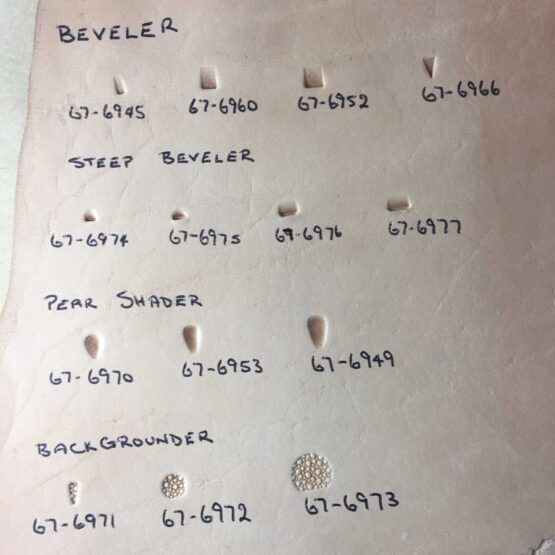 BEVELER
67-6945 67-6960 67-6952 67-6966
STEEP BEVELER
67-6974 67-6975 67-6976 67-6977
PEAR SHADER
67-6970 67-6953 67-6949
BACKGROUNDER
67-6971 67-6972 67-6973